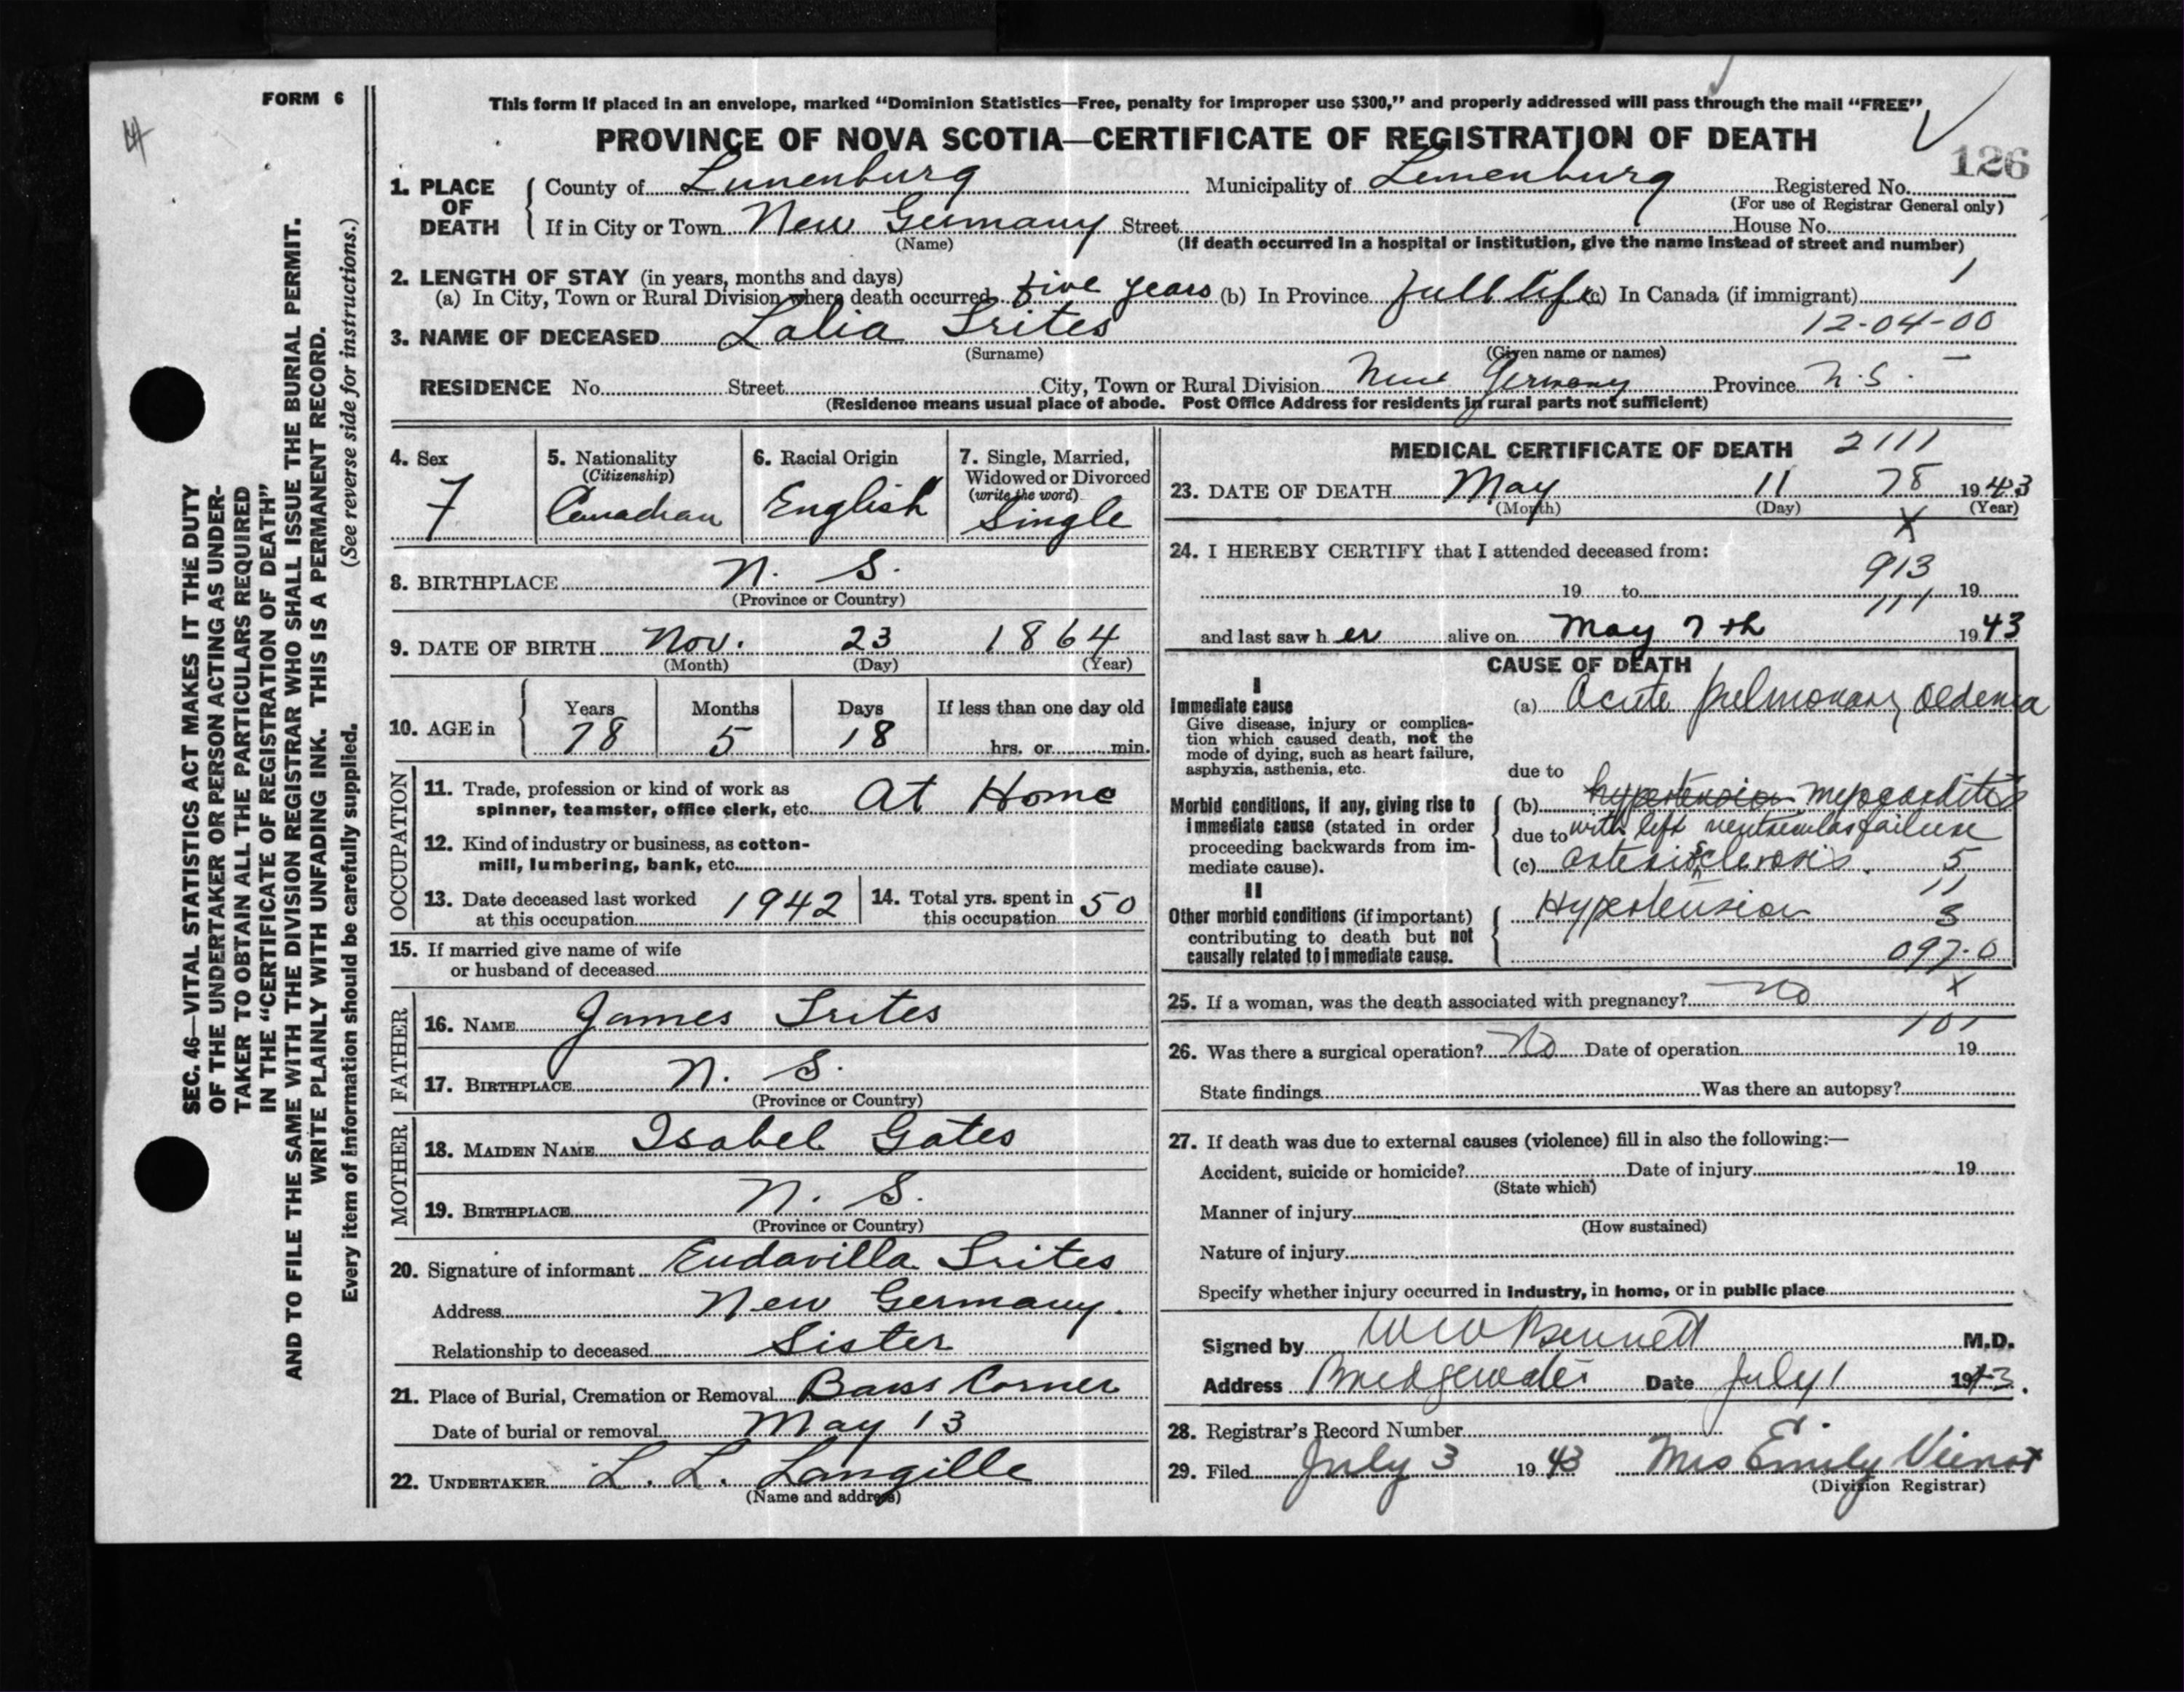 FORM 6
This form if placed in an envelope, marked “Dominion Statistics—Free, penalty for improper use $300,” and properly addressed will pass through the mail “FREE”
PROVINCE OF NOVA SCOTIA—CERTIFICATE OF REGISTRATION OF DEATH
126
1. PLACE OF DEATH
County of Lunenburg Municipality of Lunenburg Registered No.
(For use of Registrar General only)
If in City or Town New Germany Street House No.
(Name) (If death occurred in a hospital or institution, give the name instead of street and number)
2. LENGTH OF STAY (in years, months and days)
(a) In City, Town or Rural Division where death occurred five years (b) In Province full life (c) In Canada (if immigrant)
12-04-00
3. NAME OF DECEASED Lalia Trites
(Surname) (Given name or names)
RESIDENCE No. Street City, Town or Rural Division New Germany Province N.S.
(Residence means usual place of abode. Post Office Address for residents in rural parts not sufficient)
4. Sex F
5. Nationality (Citizenship) Canadian
6. Racial Origin English
7. Single, Married, Widowed or Divorced (write the word) Single
8. BIRTHPLACE N. S.
(Province or Country)
9. DATE OF BIRTH Nov. 23 1864
(Month) (Day) (Year)
10. AGE in Years Months Days If less than one day old
78 5 18 hrs. or min.
OCCUPATION
11. Trade, profession or kind of work as
spinner, teamster, office clerk, etc. At Home
12. Kind of industry or business, as cotton-
mill, lumbering, bank, etc.
13. Date deceased last worked
at this occupation 1942
14. Total yrs. spent in
this occupation 50
15. If married give name of wife
or husband of deceased
FATHER
16. NAME James Trites
17. BIRTHPLACE N. S.
(Province or Country)
MOTHER
18. MAIDEN NAME Isabel Gates
19. BIRTHPLACE N. S.
(Province or Country)
20. Signature of informant Eudavilla Trites
Address New Germany.
Relationship to deceased Sister
21. Place of Burial, Cremation or Removal Barss Corner
Date of burial or removal May 13
22. UNDERTAKER L. L. Langille
(Name and address)
MEDICAL CERTIFICATE OF DEATH 2111
23. DATE OF DEATH May 11 78 1943
(Month) (Day) (Year)
X
24. I HEREBY CERTIFY that I attended deceased from:
913
19 to 19
111
and last saw h er alive on May 7th 1943
CAUSE OF DEATH
I
Immediate cause
Give disease, injury or complica-
tion which caused death, not the
mode of dying, such as heart failure,
asphyxia, asthenia, etc.
(a) Acute pulmonary oedema
due to
Morbid conditions, if any, giving rise to
immediate cause (stated in order
proceeding backwards from im-
mediate cause).
(b) hypertension myocarditis
due to with left ventricular failure
(c) arteriosclerosis. 5
II 11
Other morbid conditions (if important)
contributing to death but not
causally related to immediate cause.
Hypertension 3
097-0
25. If a woman, was the death associated with pregnancy? No X
101
26. Was there a surgical operation? No Date of operation 19
State findings Was there an autopsy?
27. If death was due to external causes (violence) fill in also the following:—
Accident, suicide or homicide? Date of injury 19
(State which)
Manner of injury
(How sustained)
Nature of injury
Specify whether injury occurred in industry, in home, or in public place
Signed by W W Bennett M.D.
Address Bridgewater Date July 1 1943.
28. Registrar's Record Number
29. Filed July 3 1943 Mrs Emily Vienot
(Division Registrar)
SEC. 46—VITAL STATISTICS ACT MAKES IT THE DUTY
OF THE UNDERTAKER OR PERSON ACTING AS UNDER-
TAKER TO OBTAIN ALL THE PARTICULARS REQUIRED
IN THE “CERTIFICATE OF REGISTRATION OF DEATH”
AND TO FILE THE SAME WITH THE DIVISION REGISTRAR WHO SHALL ISSUE THE BURIAL PERMIT.
WRITE PLAINLY WITH UNFADING INK. THIS IS A PERMANENT RECORD.
Every item of information should be carefully supplied. (See reverse side for instructions.)